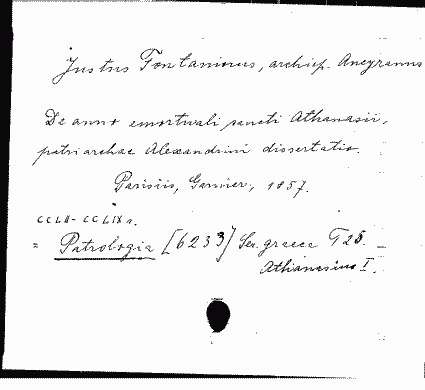 Justus Fontaninus, archiep. Ancyranus
De anno emortuali sancti Athanasii,
patriarchae Alexandrini dissertatio.
Parisiis, Garnier, 1857.
CCLII-CCLIX a.
= Patrologia [6233] Ser. graeca T 25.
Athanasius I.